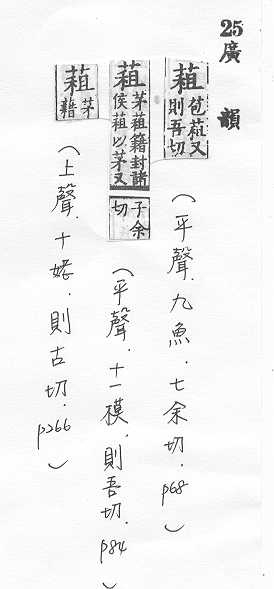 25廣韻
蒩苞蒩又
則吾切
(平聲.九魚.七余切.p68)
蒩茅蒩籍封諸
侯蒩以茅又
子余
切
(平聲.十一模.則吾切.p84)
蒩茅
藉
(上聲.十姥.則古切.p266)